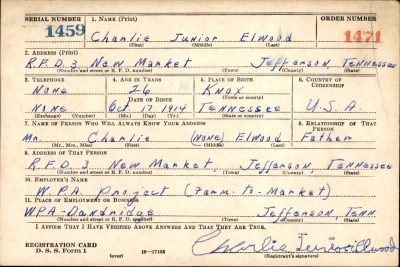 SERIAL NUMBER 1. NAME (Print) ORDER NUMBER
1459 Charlie Junior Elwood 1471
(First) (Middle) (Last)
2. ADDRESS (Print)
R.F.D. 3 New Market Jefferson, Tennessee
(Number and street or R. F. D. number) (Town) (County) (State)
3. TELEPHONE 4. AGE IN YEARS 5. PLACE OF BIRTH 6. COUNTRY OF CITIZENSHIP
None 26 Knox
DATE OF BIRTH (Town or county)
None Oct 17 1914 Tennessee U.S.A.
(Exchange) (Number) (Mo.) (Day) (Yr.) (State or country)
7. NAME OF PERSON WHO WILL ALWAYS KNOW YOUR ADDRESS 8. RELATIONSHIP OF THAT PERSON
Mr. Charlie (None) Elwood Father
(Mr., Mrs., Miss) (First) (Middle) (Last)
9. ADDRESS OF THAT PERSON
R.F.D. 3 New Market, Jefferson, Tennessee
(Number and street or R. F. D. number) (Town) (County) (State)
10. EMPLOYER'S NAME
W.P.A. Project (Farm-to-Market)
11. PLACE OF EMPLOYMENT OR BUSINESS
WPA-Dandridge Jefferson, Tenn
(Number and street or R. F. D. number) (Town) (County) (State)
I AFFIRM THAT I HAVE VERIFIED ABOVE ANSWERS AND THAT THEY ARE TRUE.
REGISTRATION CARD
D. S. S. Form 1 (over) 16-17105 Charlie Junior Ellwood
(Registrant's signature)